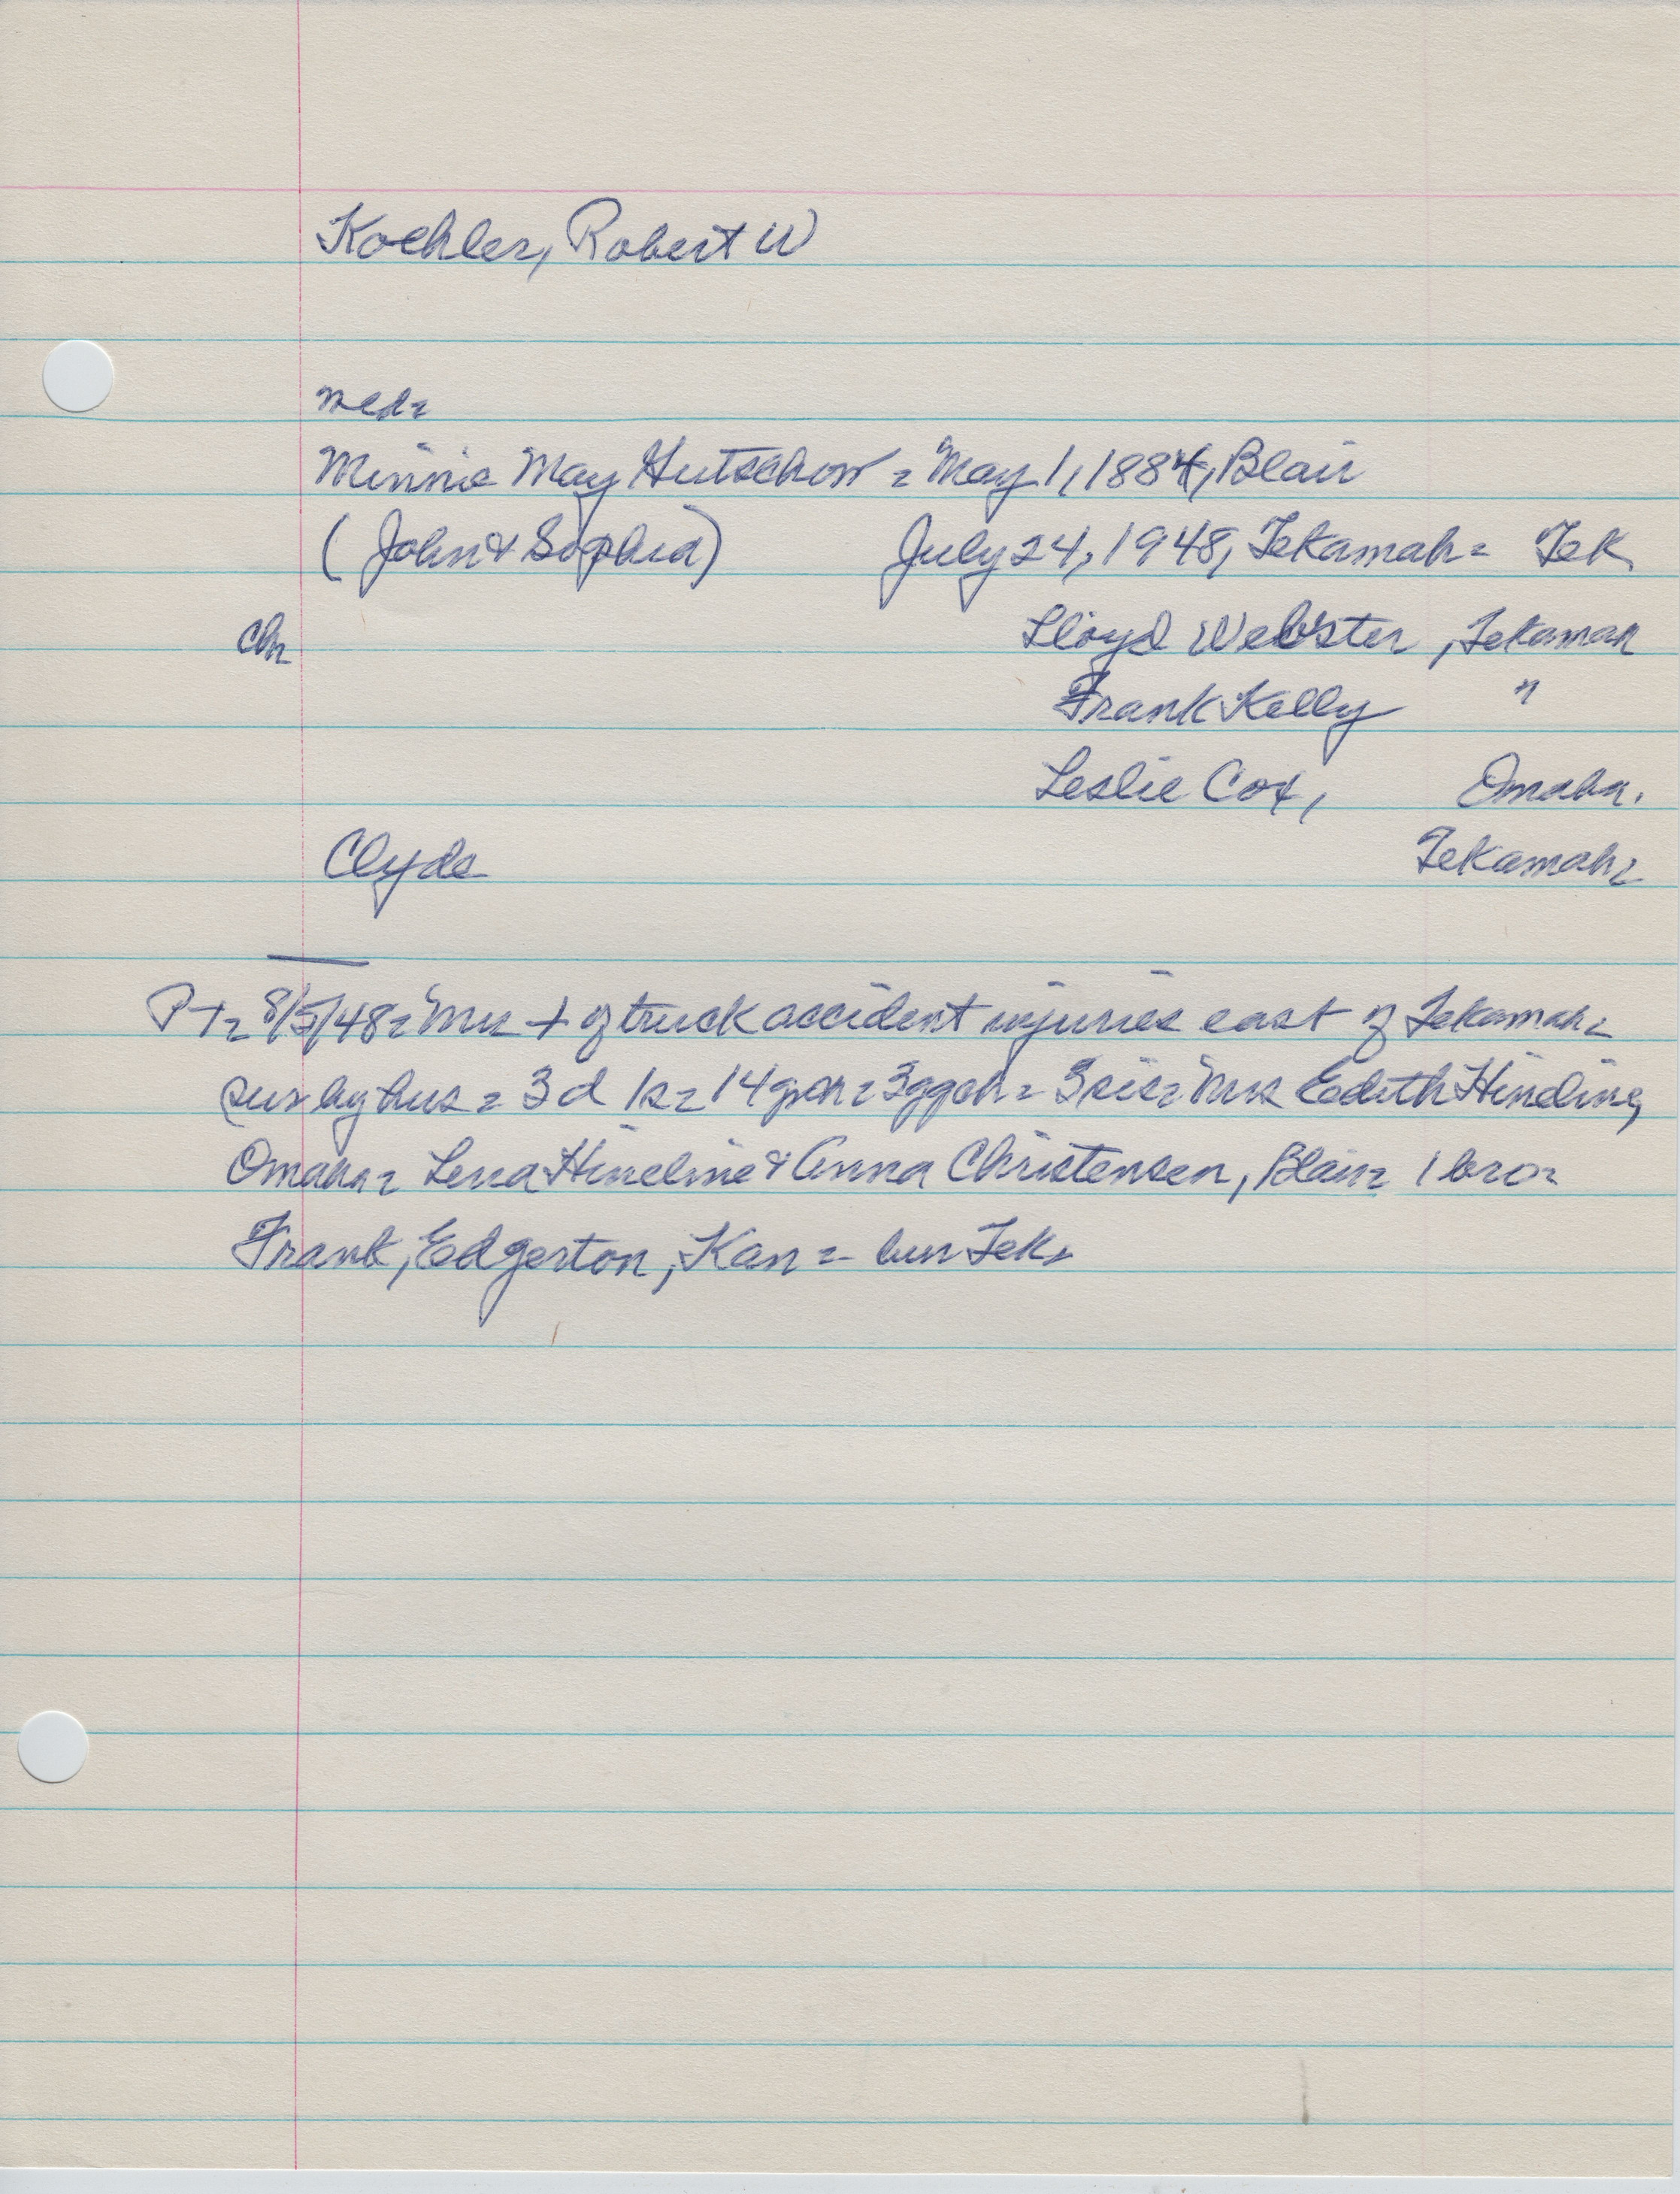 Koehler, Robert W
med=
Minnie May Hutschow = May 1, 1884, Blair
(John & Sophia) July 24, 1948, Tekamah = Tek
Chn Lloyd Webster, Tekamah
Frank Kelly "
Leslie Cox, Omaha.
Clyde Tekamah=
PT= 8/5/48= Mrs + of truck accident injuries east of Tekamah=
sur by hus = 3 d 1s= 14 gch= 3 ggch= 3 sis= Mrs Edith Hineline,
Omaha= Lena Hineline & Anna Christensen, Blair= 1 bro=
Frank, Edgerton, Kan = bur Tek=